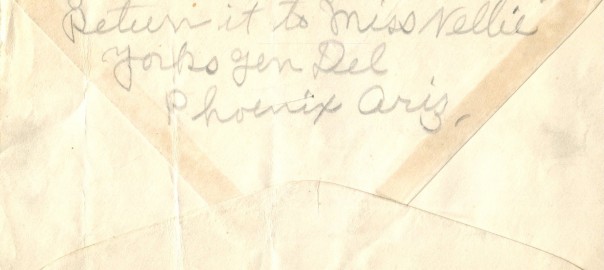 Return it to Miss Nellie
Yorks Gen Del
Phoenix Ariz.